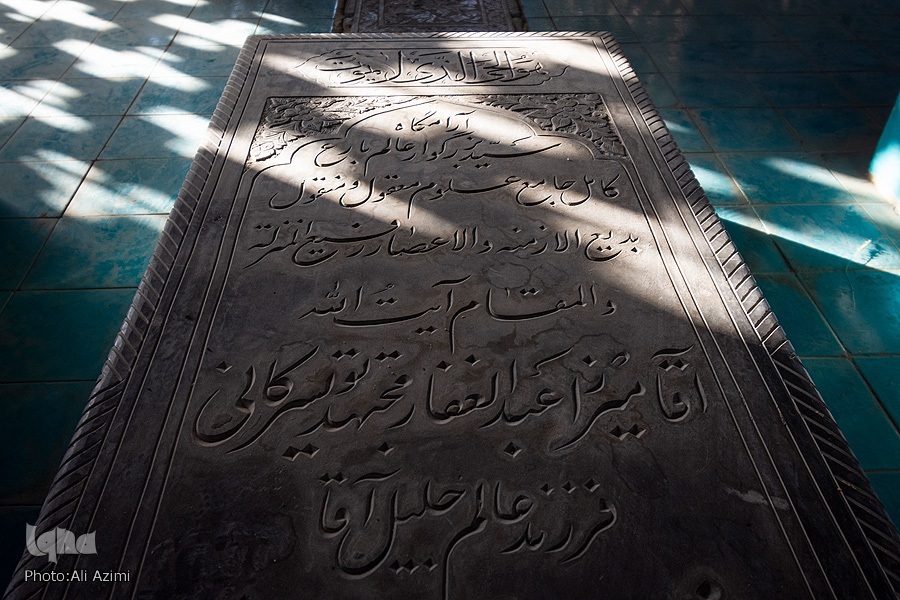 هو الحی الذی لا یموت
آرامگاه
سید بزرگوار عالم بارع
کامل جامع علوم معقول و منقول
بدیع الازمنه والاعصار رفیع المنزلة
والمقام آیت الله
آقا میرزا عبدالغفار مجتهد تویسرکانی
فرزند عالم جلیل آقا
Iqna
Photo:Ali Azimi